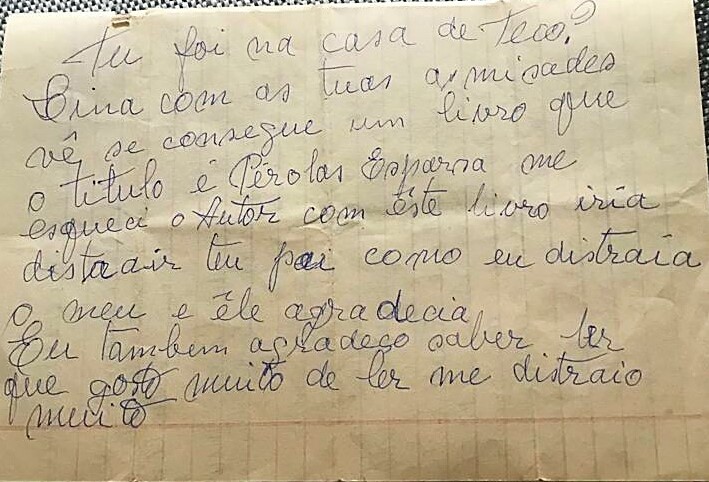 Tu foi na casa de Teco?
Cina com as tuas amisades
vê se consegue um livro que
o titulo é Pérolas Esparsa me
esqueci o Autor com êste livro iria
distrair teu pai como eu distraia
o meu e êle agradecia
Eu tambem agradeço saber ler
que gosto muito de ler me distraio
muito